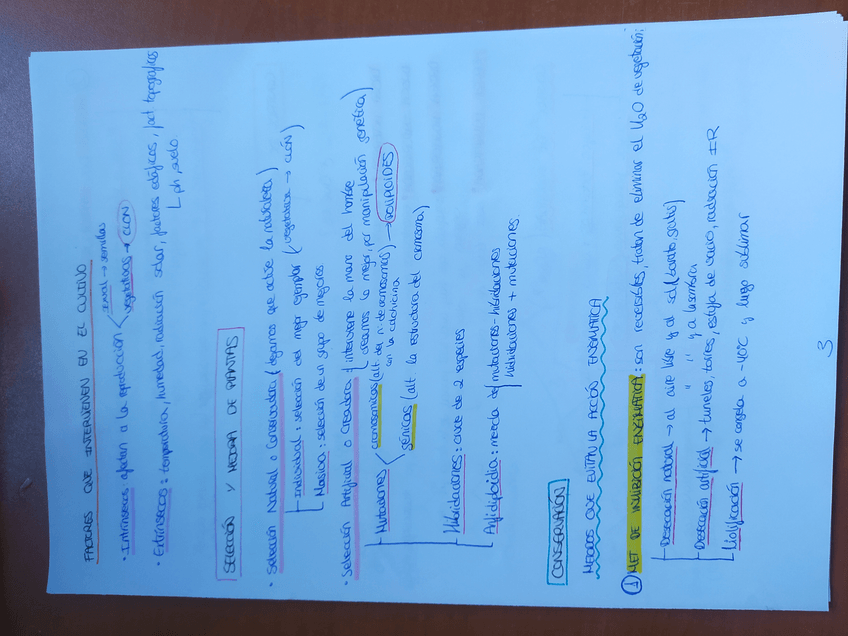 FACTORES QUE INTERVIENEN EN EL CULTIVO
· Intrínsecos: afectan a la reproducción
sexual → semillas
vegetativas → CLON
· Extrínsecos: temperatura, humedad, radiación solar, factores edáficos, fact topográficos
ph, suelo
SELECCIÓN Y MEJORA DE PLANTAS
· Selección Natural o Conservadora (dejamos que actúe la naturaleza)
Individual: selección del mejor ejemplar (vegetativa → CLON)
Masiva: selección de un grupo de mejores.
· Selección Artificial o Creadora interviene la mano del hombre
(creamos lo mejor, por manipulación genética)
Mutaciones
cromosómicas (alt del nº de cromosomas) → POLIPLOIDES
con la colchicina
génicas (alt. la estructura del cromosoma)
Hibridaciones: cruce de 2 especies
Anfidiploidia: mezcla de mutaciones-hibridaciones
hibridaciones + mutaciones.
CONSERVACIÓN
METODOS QUE EVITAN LA ACCIÓN ENZIMÁTICA
① MET DE INHIBICIÓN ENZIMÁTICA: son reversibles, tratan de eliminar el H₂O de vegetación:
Desecación natural → al aire libre y al sol (barato, gratis)
" " " y a la sombra
Desecación artificial → tuneles, torres, estufa de vacio, radiacion IR
Liofilización → se congela a -40ºC y luego sublimar
3